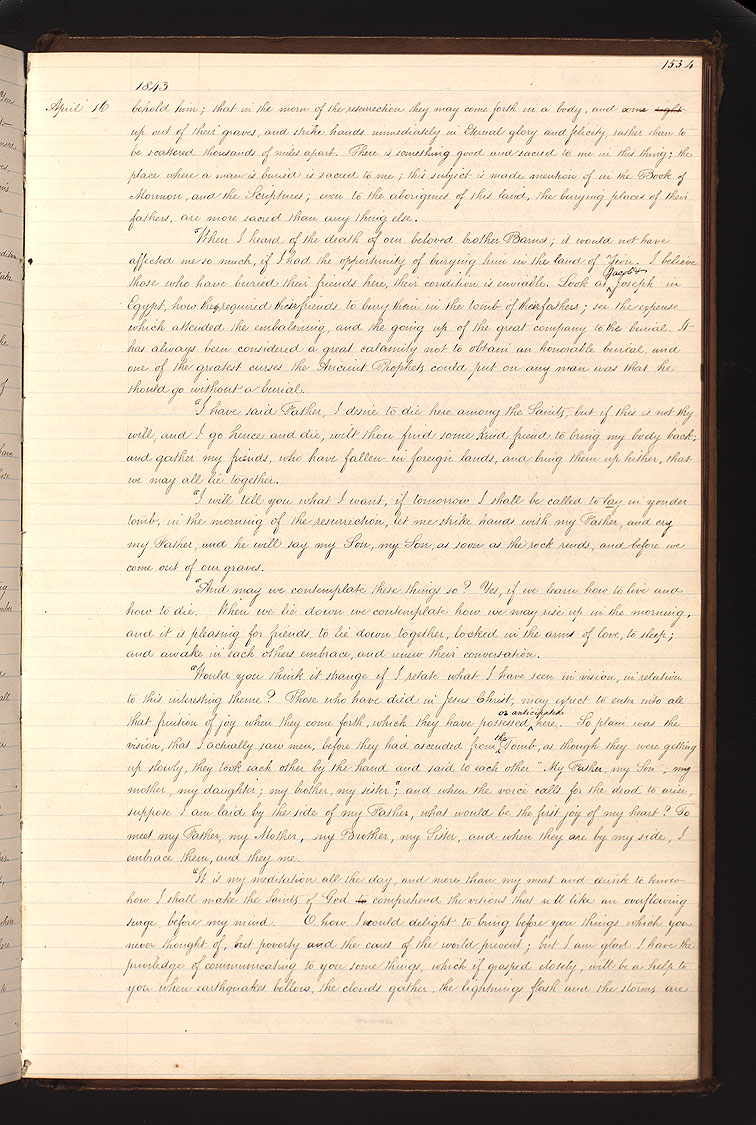 1534
1843
April 16 behold him; that in the morn of the resurrection they may come forth in a body, and come right
up out of their graves, and strike hands immediately in Eternal glory and felicity, rather than to
be scattered thousands of miles apart. There is something good and sacred to me in this thing; the
place where a man is buried is sacred to me; this subject is made mention of in the Book of
Mormon, and the Scriptures; even to the aborigines of this land, the burying places of their
fathers, are more sacred than any thing else.
"When I heard of the death of our beloved brother Barnes; it would not have
affected me so much, if I had the opportunity of burying him in the land of Zion. I believe
those who have buried their friends here, their condition is enviable. Look at Jacob & Joseph in
Egypt, how they required their friends to bury them in the tomb of their fathers; see the expense
which attended the embalming, and the going up of the great company to the burial. It
has always been considered a great calamity not to obtain an honorable burial, and
one of the greatest curses the Ancient Prophets could put on any man was that he
should go without a burial.
"I have said Father, I desire to die here among the Saints, but if this is not thy
will, and I go hence and die, wilt thou find some kind friend to bring my body back;
and gather my friends, who have fallen in foreign lands, and bring them up hither, that
we may all lie together.
"I will tell you what I want, if tomorrow I shall be called to lay in yonder
tomb, in the morning of the resurrection, let me strike hands with my Father, and cry
my Father, and he will say my Son, my Son, as soon as the rock rends, and before we
come out of our graves.
"And may we contemplate these things so? Yes, if we learn how to live and
how to die. When we lie down we contemplate how we may rise up in the morning,
and it is pleasing for friends to lie down together, locked in the arms of love, to sleep;
and awake in each others embrace, and renew their conversation.
"Would you think it strange if I relate what I have seen in vision, in relation
to this interesting theme? Those who have died in Jesus Christ, may expect to enter into all
that fruition of joy when they come forth, which they have possessed or anticipated here. So plain was the
vision, that I actually saw men, before they had ascended from the Tomb, as though they were getting
up slowly, they took each other by the hand and said to each other "My Father, my Son"; my
mother, my daughter; my brother, my sister"; and when the voice calls for the dead to arise,
suppose I am laid by the side of my Father, what would be the first joy of my heart? To
meet my Father, my Mother, my Brother, my Sister, and when they are by my side, I
embrace them, and they me.
"It is my meditation all the day, and more than my meat and drink to know
how I shall make the Saints of God to comprehend the visions that roll like an overflowing
surge, before my mind. O how I would delight to bring before you things which you
never thought of, but poverty and the cares of the world prevent; but I am glad I have the
priviledge of communicating to you some things, which if grasped closely, will be a help to
you when earthquakes bellow, the clouds gather, the lightnings flash and the storms are